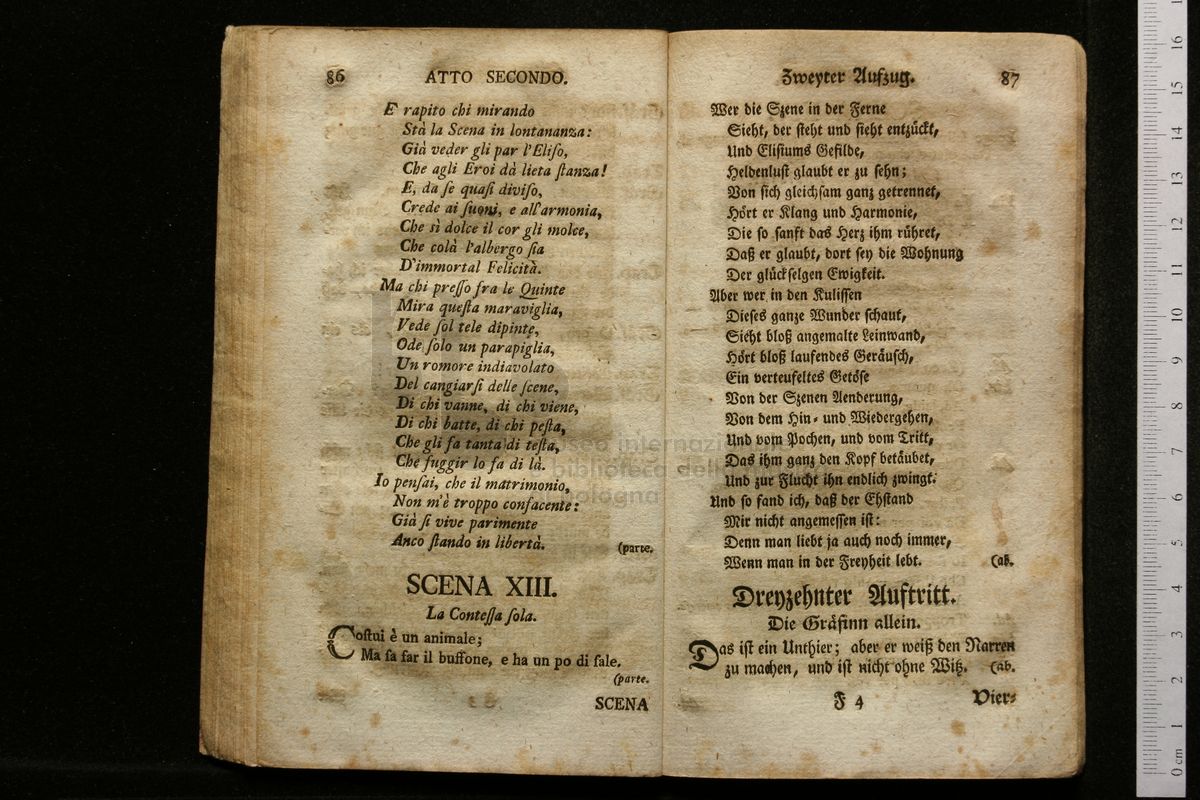 86 ATTO SECONDO.
E rapito chi mirando
Stà la Scena in lontananza:
Già veder gli par l'Eliſo,
Che agli Eroi dà lieta ſtanza!
E, da ſe quaſi diviſo,
Crede ai ſuoni, e all'armonia,
Che sì dolce il cor gli molce,
Che colà l'albergo ſia
D'immortal Felicità.
Ma chi preſſo fra le Quinte
Mira queſta maraviglia,
Vede ſol tele dipinte,
Ode ſolo un parapiglia,
Un romore indiavolato
Del cangiarſi delle ſcene,
Di chi vanne, di chi viene,
Di chi batte, di chi peſta,
Che gli fa tanta di teſta,
Che fuggir lo fa di là.
Io penſai, che il matrimonio,
Non m'è troppo confacente:
Già ſi vive parimente
Anco ſtando in libertà. (parte.
SCENA XIII.
La Conteſſa ſola.
Coſtui è un animale;
Ma ſa far il buffone, e ha un po di ſale.
(parte.
SCENA
Zweyter Aufzug. 87
Wer die Szene in der Ferne
Sieht, der ſteht und ſieht entzückt,
Und Eliſiums Gefilde,
Heldenluſt glaubt er zu ſehn;
Von ſich gleichſam ganz getrennet,
Hört er Klang und Harmonie,
Die ſo ſanft das Herz ihm rühret,
Daß er glaubt, dort ſey die Wohnung
Der glückſelgen Ewigkeit.
Aber wer in den Kuliſſen
Dieſes ganze Wunder ſchaut,
Sieht bloß angemalte Leinwand,
Hört bloß laufendes Geräuſch,
Ein verteufeltes Getöſe
Von der Szenen Aenderung,
Von dem Hin- und Wiedergehen,
Und vom Pochen, und vom Tritt,
Das ihm ganz den Kopf betäubet,
Und zur Flucht ihn endlich zwingt.
Und ſo fand ich, daß der Ehſtand
Mir nicht angemeſſen iſt:
Denn man liebt ja auch noch immer,
Wenn man in der Freyheit lebt. (ab.
Dreyzehnter Auftritt.
Die Gräfinn allein.
Das iſt ein Unthier; aber er weiß den Narren
zu machen, und iſt nicht ohne Witz. (ab.
F 4 Vier-